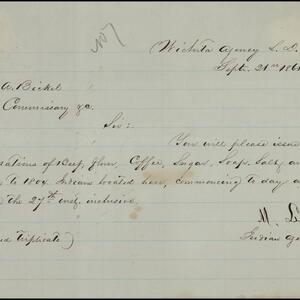 No 7
Wichita Agency L. D.
Sept. 21st 186
A. Bickel
Commissary &c.
Sir:
You will please issue
rations of Beef, flour, Coffee, Sugar, Soap, Salt, an
to 1804 Indians located here, commencing to day a
the 27th inst. inclusive.
M. L
Indian Ge
ed Triplicate)